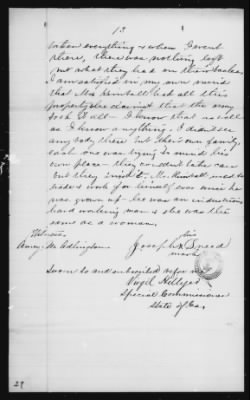 13
when everything when I went
there, there was nothing left
but what they had on their backs
I am satisfied in my own mind
that Mr Kimball had all this
property he claims & that the army
took it all - I know that as well
as I know anything. I didn't see
any body there but their own family;
each one was trying to mind his
own place - they couldn't take care
but they tried it. Mr. Kimball used to
trade & work for himself ever since he
was grown up - he was an industrious
hard working man & she was the
same as a woman.
Witness
his
Amry. M. Adlington
Joseph X Snead
mark
Sworn to and subscribed before me
Virgil Hillyer
Special Commissioner
State of Ga.
29